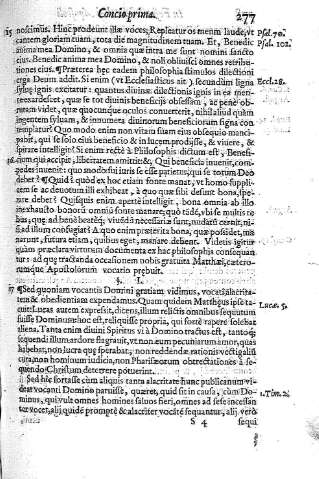 Concio prima. 277
15 noscimus. Hinc prodeunt illæ voces; Repleatur os meum laude, vt Psal. 70.
cantem gloriam tuam, tota die magnitudinem tuam. Et, Benedic Psal. 102.
anima mea Domino, & omnia quæ intra me sunt nomini sancto
eius. Benedic anima mea Domino, & noli obliuisci omnes retribu-
tiones eius. ¶ Præterea hęc eadem philosophia stimulos dilectionis
erga Deum addit. Si enim (vt Ecclesiasticus ait) secundum ligna Eccl. 28.
syluę ignis excitatur: quantus diuinæ dilectionis ignis in ea mente
exardescet, quæ se tot diuinis beneficijs obsessam, ac penè obru-
tam videt, quæ quocunque oculos conuerterit, nihil aliud quàm
ingentem syluam, & innumera diuinorum beneficiorum signa con
templatur? Quo modo enim non vitam suam eius obsequio manci-
pabit, qui se solo eius beneficio & in lucem prodijsse, & viuere, &
spirare intelligit? Si enim rectè à Philosophis dictum est, Benefi-
16 cium qui accipit, libertatem amittit: &, Qui beneficia inuenit, com-
pedes inuenit: quo modo sui iuris se esse patietur, qui se totum Deo
debet? ¶ Quid? quòd ex hoc etiam fonte manat, vt homo supplicem
se ac deuotum illi exhibeat, à quo quæ sibi desunt bona, spe-
rare debet? Quisquis enim apertè intelligit, bona omnia ab illo
inexhausto bonorũ omniũ fonte manare;
nisi ad illum confugiat? A quo enim præterita bona, quæ possidet, ma-
narunt, futura etiam, quibus eget, manare debent. Videtis igitur
quàm præclara virtutum documenta ex hac philosophia consequan-
tur, ad quę tractanda occasionem nobis gratuita Matthæi, cætero-
rumque Apostolorum vocatio præbuit.
§. 1.
17 ¶ Sed quoniam vocantis Domini gratiam vidimus, vocati alacrita-
tem & obedientiam expendamus. Quam quidem Matthęus ipse ta-
cuit: Lucas autem expressit, dicens, illum relictis omnibus sequutum Lucæ. 5.
fuisse Dominum:
aliena. Tanta enim diuini Spiritus vi à Domino tractus est, tantoq́;
sequendi illum ardore flagrauit, vt non eum pecuniarum amor, quas
habebat, non lucra quę sperabat, non reddendæ rationis vectigalis
cura, non hominum iudicia, non Pharisæorum obtrectationes à se-
quendo Christum deterrere potuerint.
Sed hîc fortasse cùm aliquis tanta alacritate hunc publicanum vi-
deat vocanti Domino paruisse, quæret, quid sit in causa, cùm Do- 1. Tim. 2.
minus, qui vult omnes homines saluos fieri, omnes ad se incessan-
ter vocet, alij quidẽ promptè & alacriter vocãtẽ sequantur, alij verò
S 4 sequi